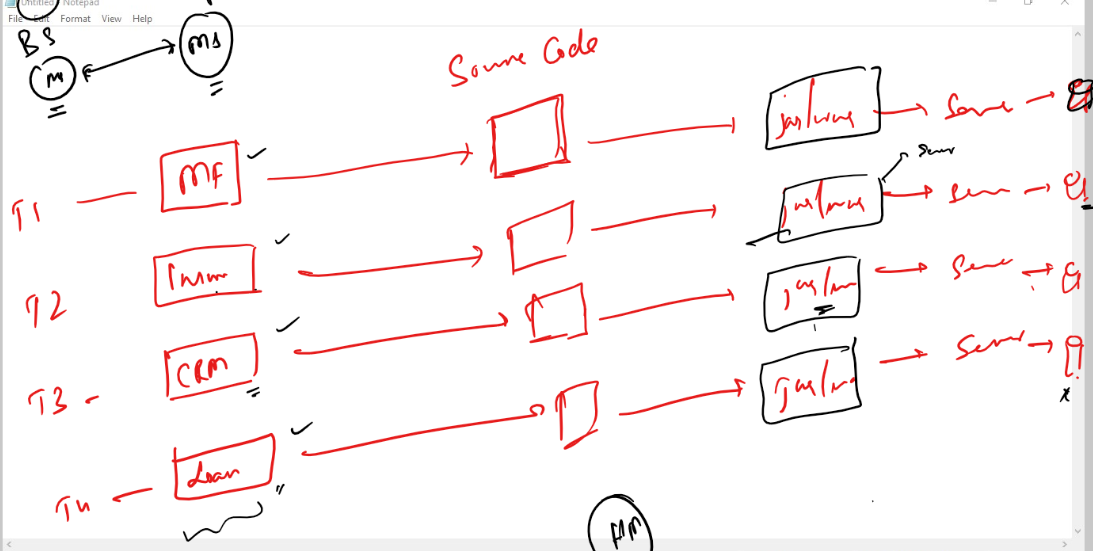 Untitled - Notepad
File Edit Format View Help
BS
M
MS
Source Code
T1
MF
jar/war
Server
Server
T2
jar/war
Server
T3
CRM
jar/war
Server
T4
Loan
jar/war
Server